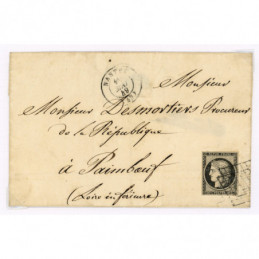 Monsieur
Monsieur Desmortiers Procureur
de la République
à Paimboeuf
(Loire inférieure)